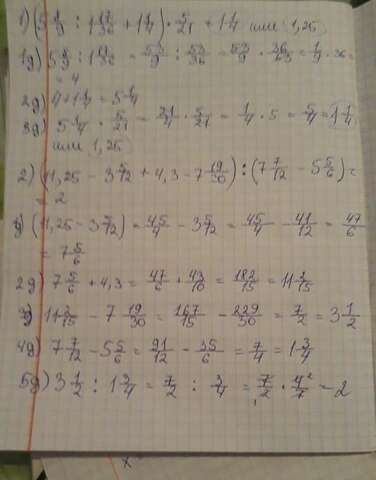 1) (5 8/9 : 1 17/36 + 1 1/4) · 5/21 = 1 1/4 или: 1,25)
1д) 5 8/9 : 1 17/36 = 53/9 : 53/36 = 53/9 · 36/53 = 1/9 · 36 =
= 4
2д) 4 + 1 1/4 = 5 1/4
3д) 5 1/4 · 5/21 = 21/4 · 5/21 = 1/4 · 5 = 5/4 = (1 1/4
или 1,25)
2) (11,25 - 3 5/12 + 4,3 - 7 19/30) : (7 7/12 - 5 5/6) =
= 2
1д) (11,25 - 3 5/12) = 45/4 - 3 5/12 = 45/4 - 41/12 = 47/6
= 7 5/6
2д) 7 5/6 + 4,3 = 47/6 + 43/10 = 182/15 = 11 2/15
3д) 11 2/15 - 7 19/30 = 167/15 - 229/30 = 7/2 = 3 1/2
4д) 7 7/12 - 5 5/6 = 91/12 - 35/6 = 7/4 = 1 3/4
5д) 3 1/2 : 1 3/4 = 7/2 : 3/4 = 7/2 · 4²/7 = 2